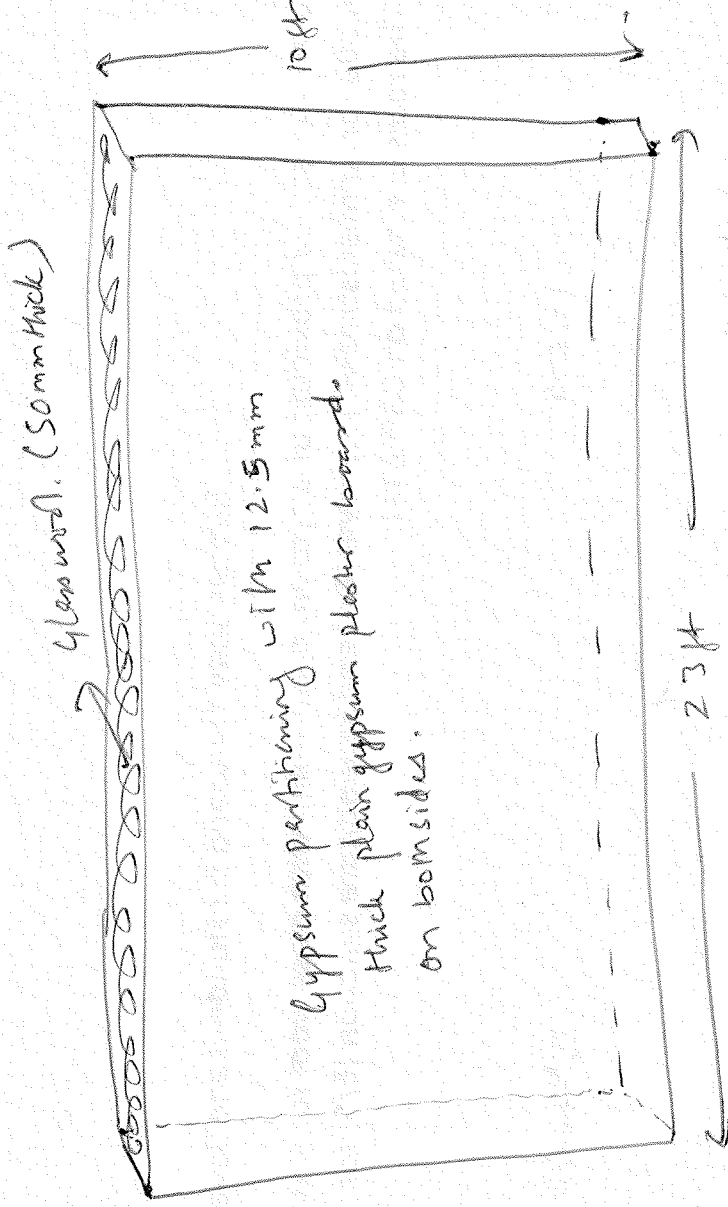 Glasswool. (50mm thick)
10 ft
Gypsum partitioning with 12.5mm
thick plain gypsum plaster board.
on both sides.
23 ft